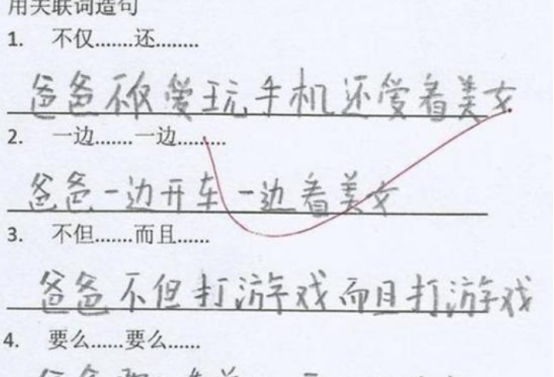 用关联词造句
1. 不仅……还………
爸爸不仅爱玩手机还爱看美女
2. 一边……一边………
爸爸一边开车一边看美女
3. 不但……而且……
爸爸不但打游戏而且打游戏
4. 要么……要么……
爸爸